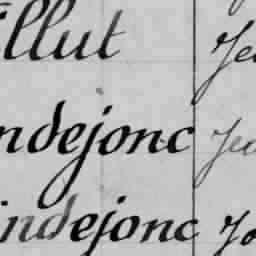 illut Je
ndejonc Jea
indejonc Jo